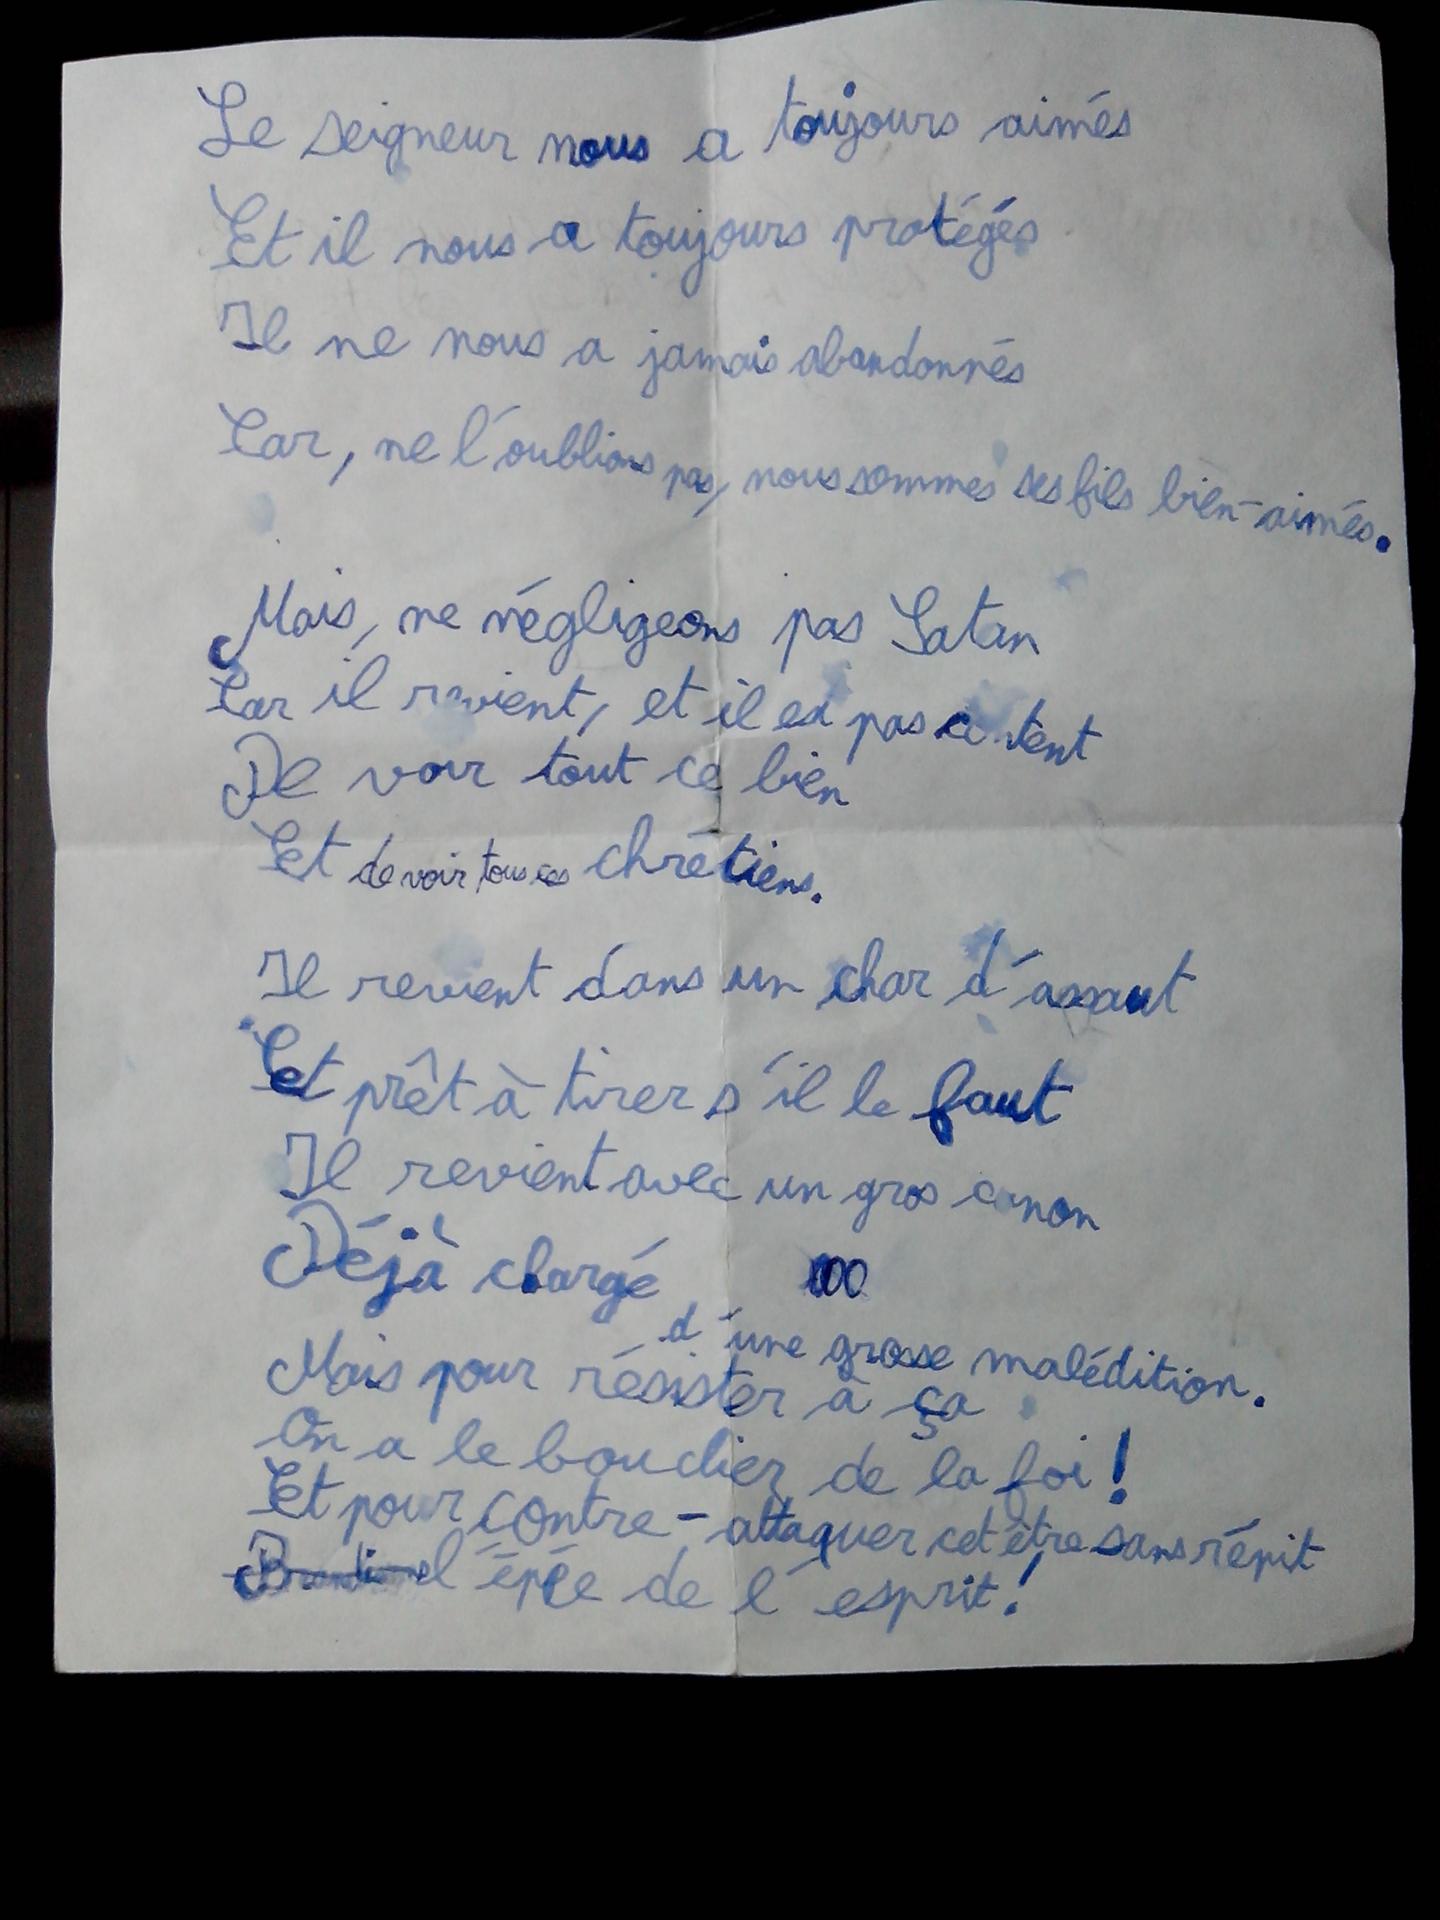 Le seigneur nous a toujours aimés
Et il nous a toujours protégés
Il ne nous a jamais abandonnés
Car, ne l'oublions pas, nous sommes ses fils bien-aimés.
Mais, ne négligeons pas Satan
Car il revient, et il est pas content
De voir tout ce bien
Et de voir tous ces chrétiens.
Il revient dans un char d'assaut
Et prêt à tirer s'il le faut
Il revient avec un gros canon
Déjà chargé
d'une grosse malédition.
Mais pour résister à ça
On a le bouclier de la foi !
Et pour contre-attaquer cet être sans répit
l'épée de l'esprit !